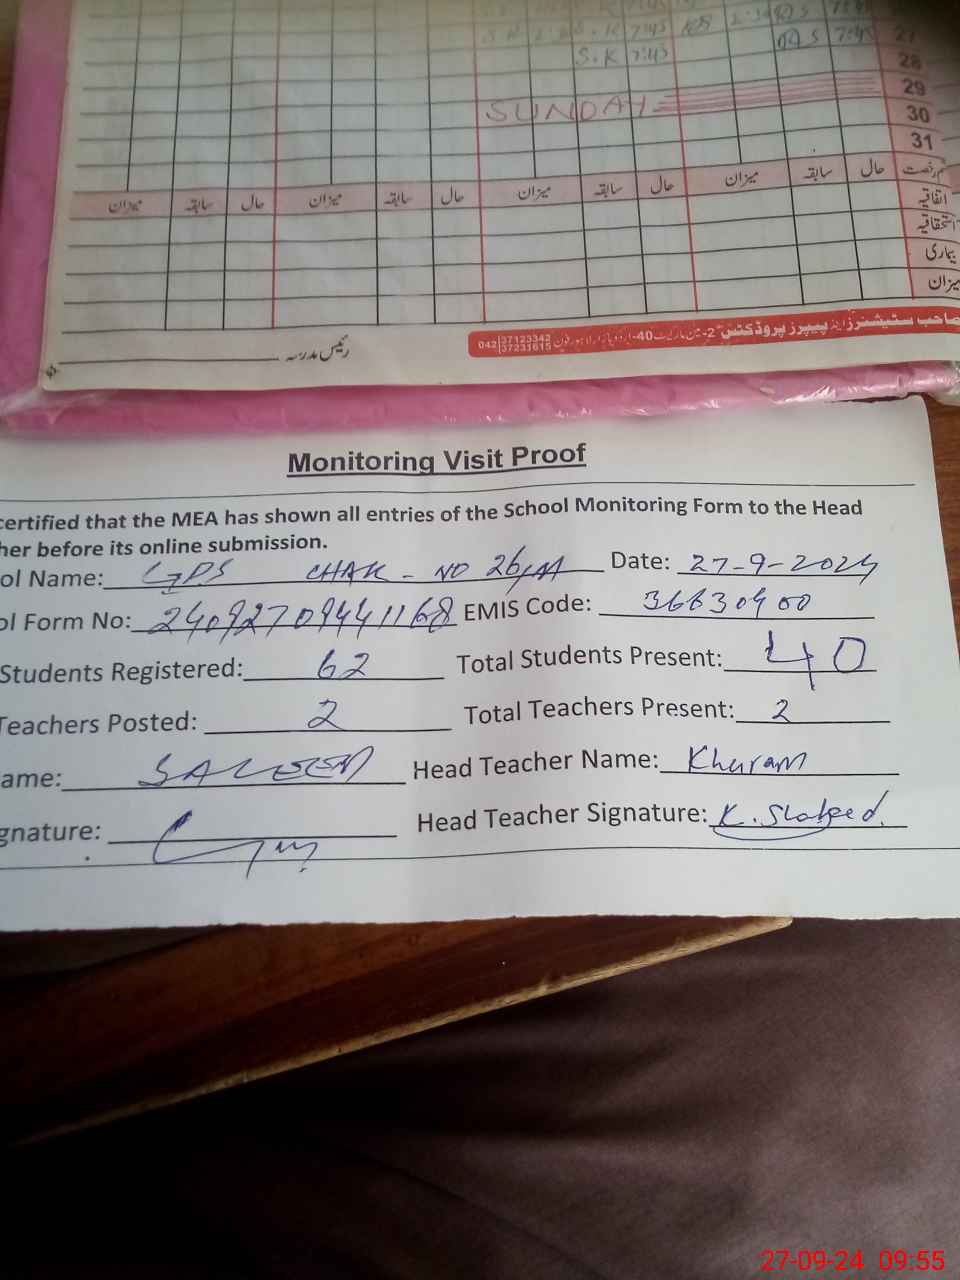 S.K 7:43 S 7:45 27
28
29
SUNDAY 30
31
میزان سابقہ حال میزان سابقہ حال میزان سابقہ حال میزان سابقہ حال
اتفاقیہ
استحقاقیہ
بیماری
میزان
صاحب سٹیشنرز اینڈ پیپرز پروڈکٹس
042 37123342
37233615
رئیس مدرسہ
Monitoring Visit Proof
certified that the MEA has shown all entries of the School Monitoring Form to the Head
her before its online submission.
ol Name: GPS CHAK - NO 26/M Date: 27-9-2024
ol Form No: 24092709441168 EMIS Code: 36630400
Students Registered: 62 Total Students Present: 40
Teachers Posted: 2 Total Teachers Present: 2
ame: SALEEM Head Teacher Name: Khuram
gnature: Head Teacher Signature: K. Shakeed.
27-09-24 09:55